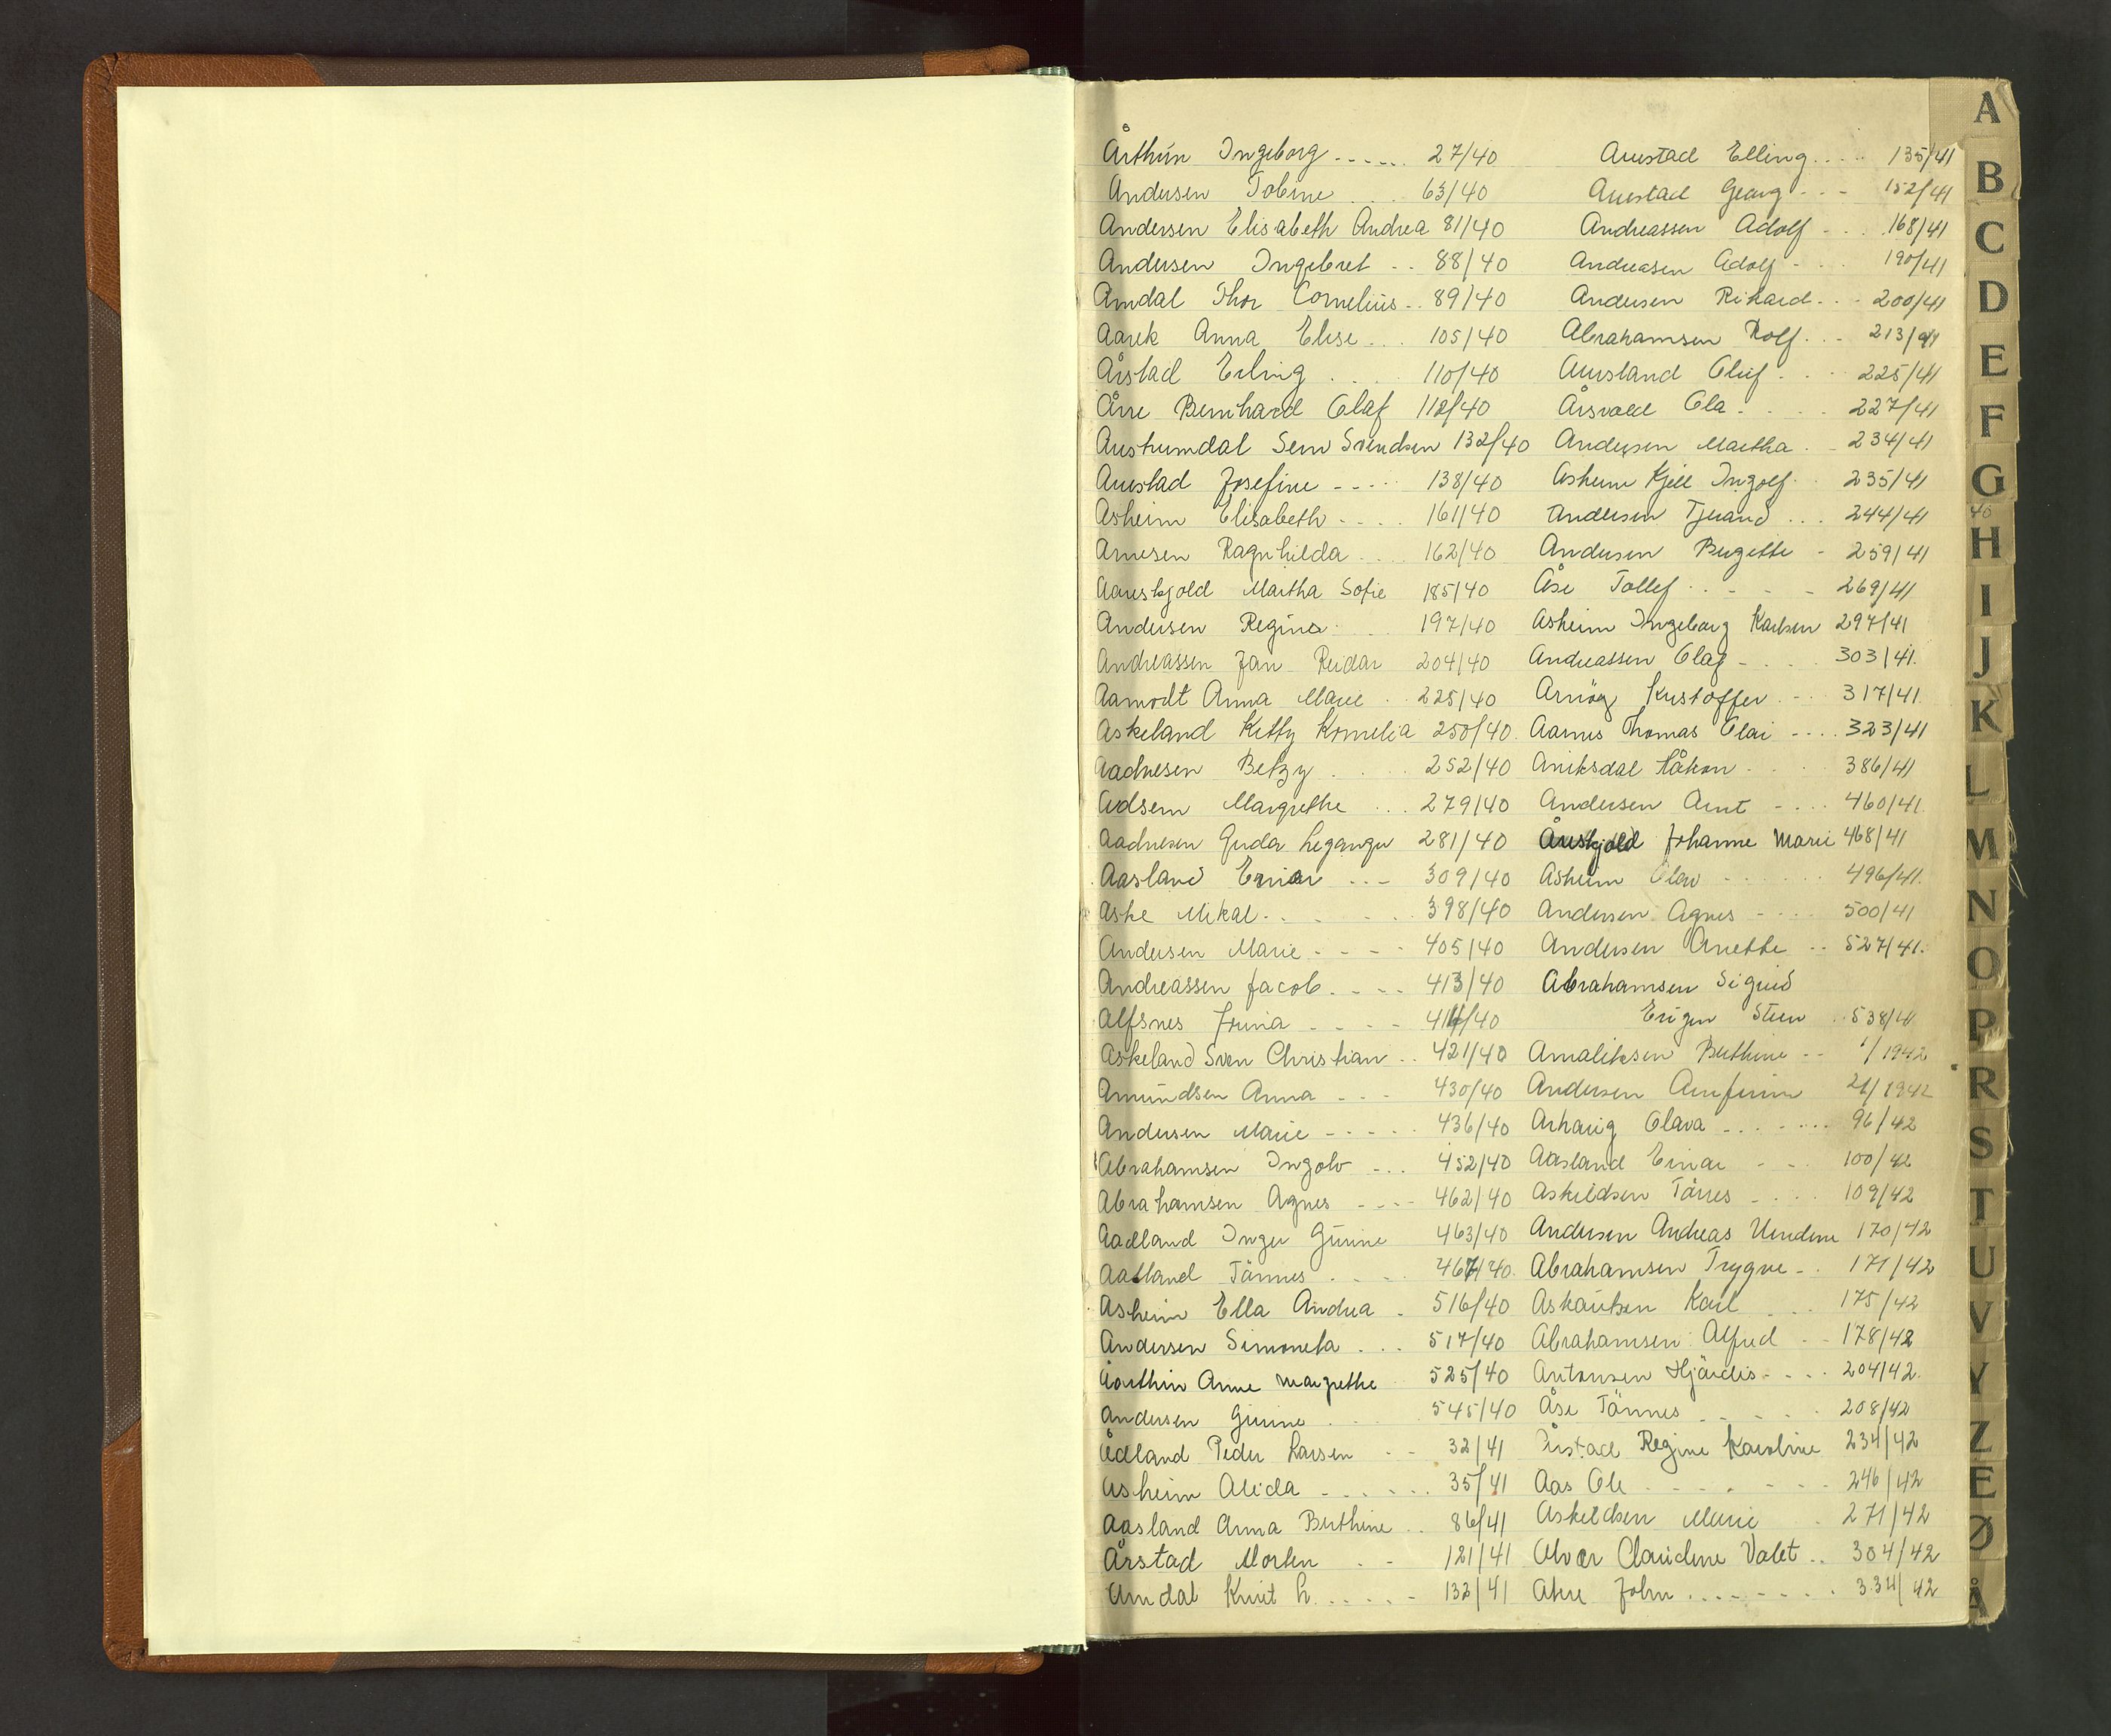 Årthun Ingeborg ...... 27/40
Andersen Tobine .. 63/40
Andersen Elisabeth Andrea 81/40
Andersen Ingebret .. 88/40
Amdal Thor Cornelius .. 89/40
Aarek Anna Elise ... 105/40
Årstad Erling .... 110/40
Årre Bernhard Olaf 112/40
Austrumdal Sem Svendsen 132/40
Auestad Josefine ----- 138/40
Asheim Elisabeth .... 161/40
Arnesen Ragnhilda ... 162/40
Martha Sofie 185/40
Andersen Regina .. 197/40
Andreassen Jan Reidar 204/40
Aamodt Anna Marie . 225/40
Askeland Kitty Kornelia 250/40.
Aadnesen Betzy .... 252/40
Margrethe ... 279/40
Aadnesen Guda 281/40
Aasland Einar --- 309/40
Aske Mikal ..... 398/40
Andersen Marie ---- 405/40
Andreassen Jacob .... 413/40
Alfsnes ---- 414/40
Askeland Sven Christian .. 421/40
Amundsen Anna --- 430/40
Andersen Marie ----- 436/40
Abrahamsen Ingolv ... 452/40
Abrahamsen Agnes ---- 462/40
Aadland Inger Gurine 463/40
Tännes .... 467/40.
Asheim Ella Andrea . 516/40
Andersen Simoneta ... 517/40
Anne Margrethe 525/40
Andersen Gurine .... 545/40
Ådland Peder Larsen -- 32/41
Asheim Alida ...... 35/41
Aasland Anna Berthine .. 86/41
Årstad Morten . - 121/41
Amdal Knut L. ..... 132/41
Auestad Elling ..... 135/41
Auestad Georg --- 152/41
Andreassen Adolf .... 168/41
Andreasen Adolf .... 190/41
Andersen Rikard ... 200/41
Abrahamsen Rolf ... 213/41
Auestad Oluf .... 225/41
Årsvold Ola ..... 227/41
Andersen Martha . - 234/41
Asheim Kjell Ingolf .. 235/41
Andersen Tjerand ... 244/41
Andersen Birgitte - 259/41
Åse Tollef ..... 269/41
Asheim Ingeborg Karlsen 297/41
Andreassen Olaf .... 303/41.
Kristoffer ... 317/41.
Aarnes Thomas Olai .... 323/41
Aniksdal Håkon .... 386/41
Andersen Arnt .... 460/41.
Johanne Marie 468/41
Asheim Olav ...... 496/41.
Andersen Agnes .... 500/41
Andersen Anette .. 527/41.
Abrahamsen Sigurd
538/41
Amaliksen Berthine -- 1/1942
Andersen 21/1942
Olava ........ 96/42
Aasland Einar -- 100/42
Askildsen Törres .... 109/42
Andersen Andreas 170/42
Abrahamsen Trygve .. 171/42
Karl ... 175/42
Abrahamsen Alfred -- 178/42
Antonsen Hjördis .... 204/42.
Åse Tönnes ..... 208/42
Årstad Regine Karoline 234/42
Aas Ole ....... 246/42
Askildsen . 271/42
.. 304/42
John ........ 334/42
A
B
C
D
E
F
G
40
H
I
J
K
L
M
N
O
P
R
S
T
U
V
Y
Z
E
Ø
Å